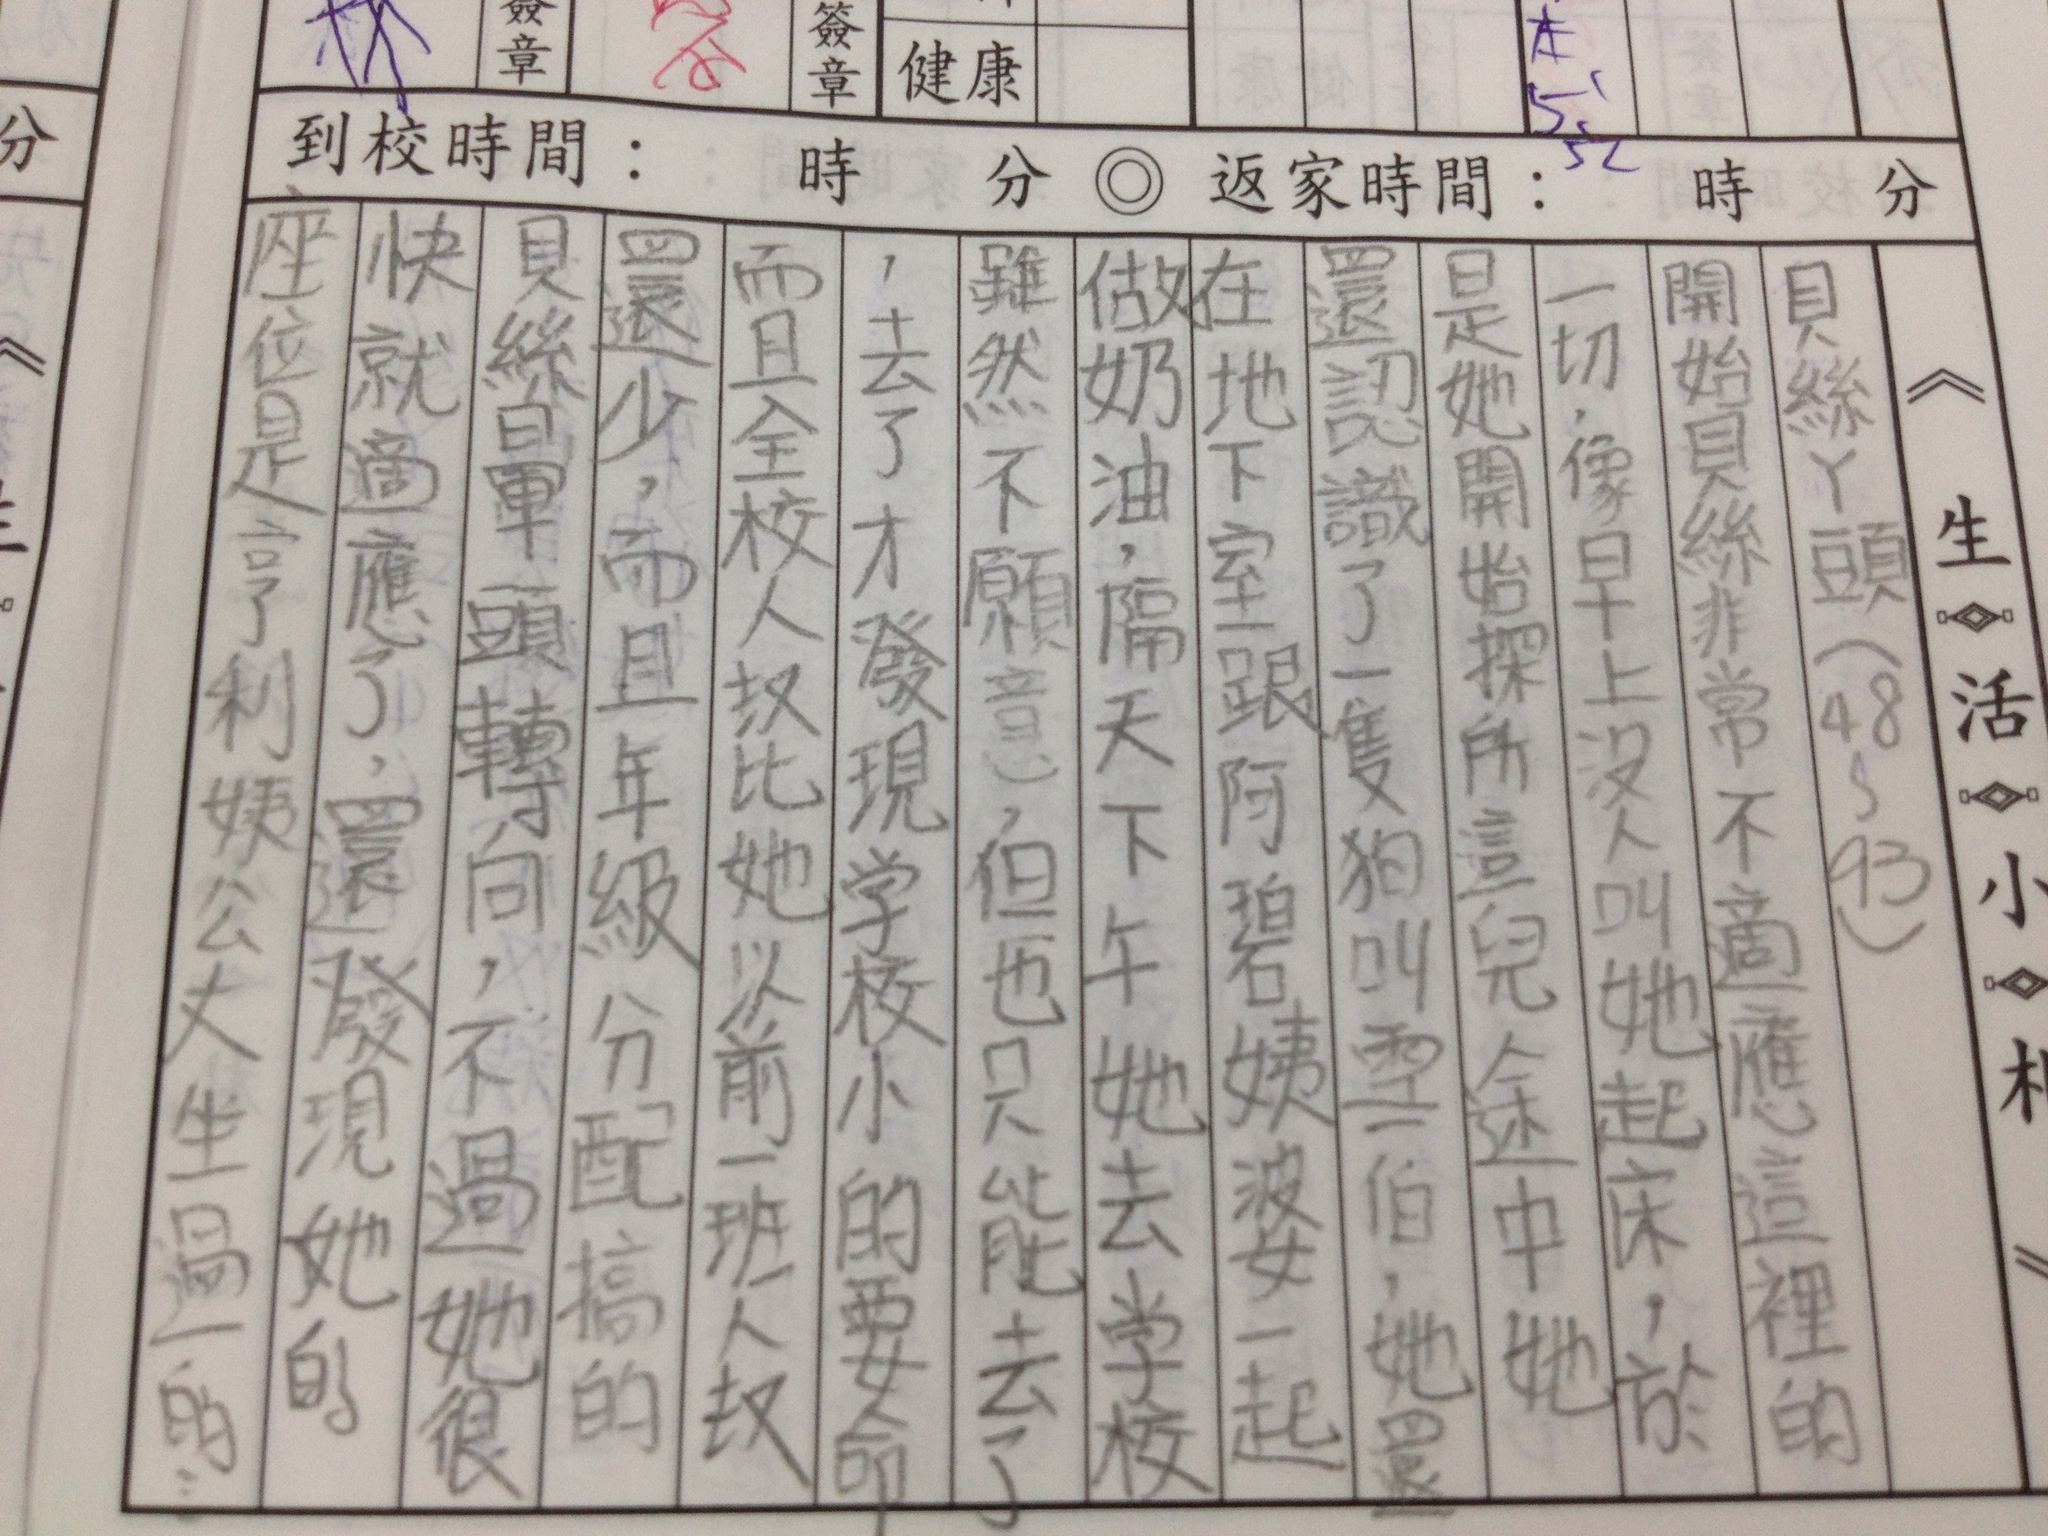 簽章
簽章
健康
到校時間： 時 分 ◎ 返家時間： 時 分
《 生活小札 》
貝絲丫頭(48~93)
開始貝絲非常不適應這裡的
一切,像早上沒人叫她起床,於
是她開始探所這兒,途中她
還認識了一隻狗叫雪伯,她還
在地下室跟阿碧姨婆一起
做奶油,隔天下午她去学校
雖然不願意,但也只能去了
,去了才發現学校小的要命
而且全校人数比她以前一班人数
還少,而且年級分配搞的
貝絲暈頭轉向,不過她很
快就適應了,還發現她的
座位是亨利姨公丈坐過的…
分
《